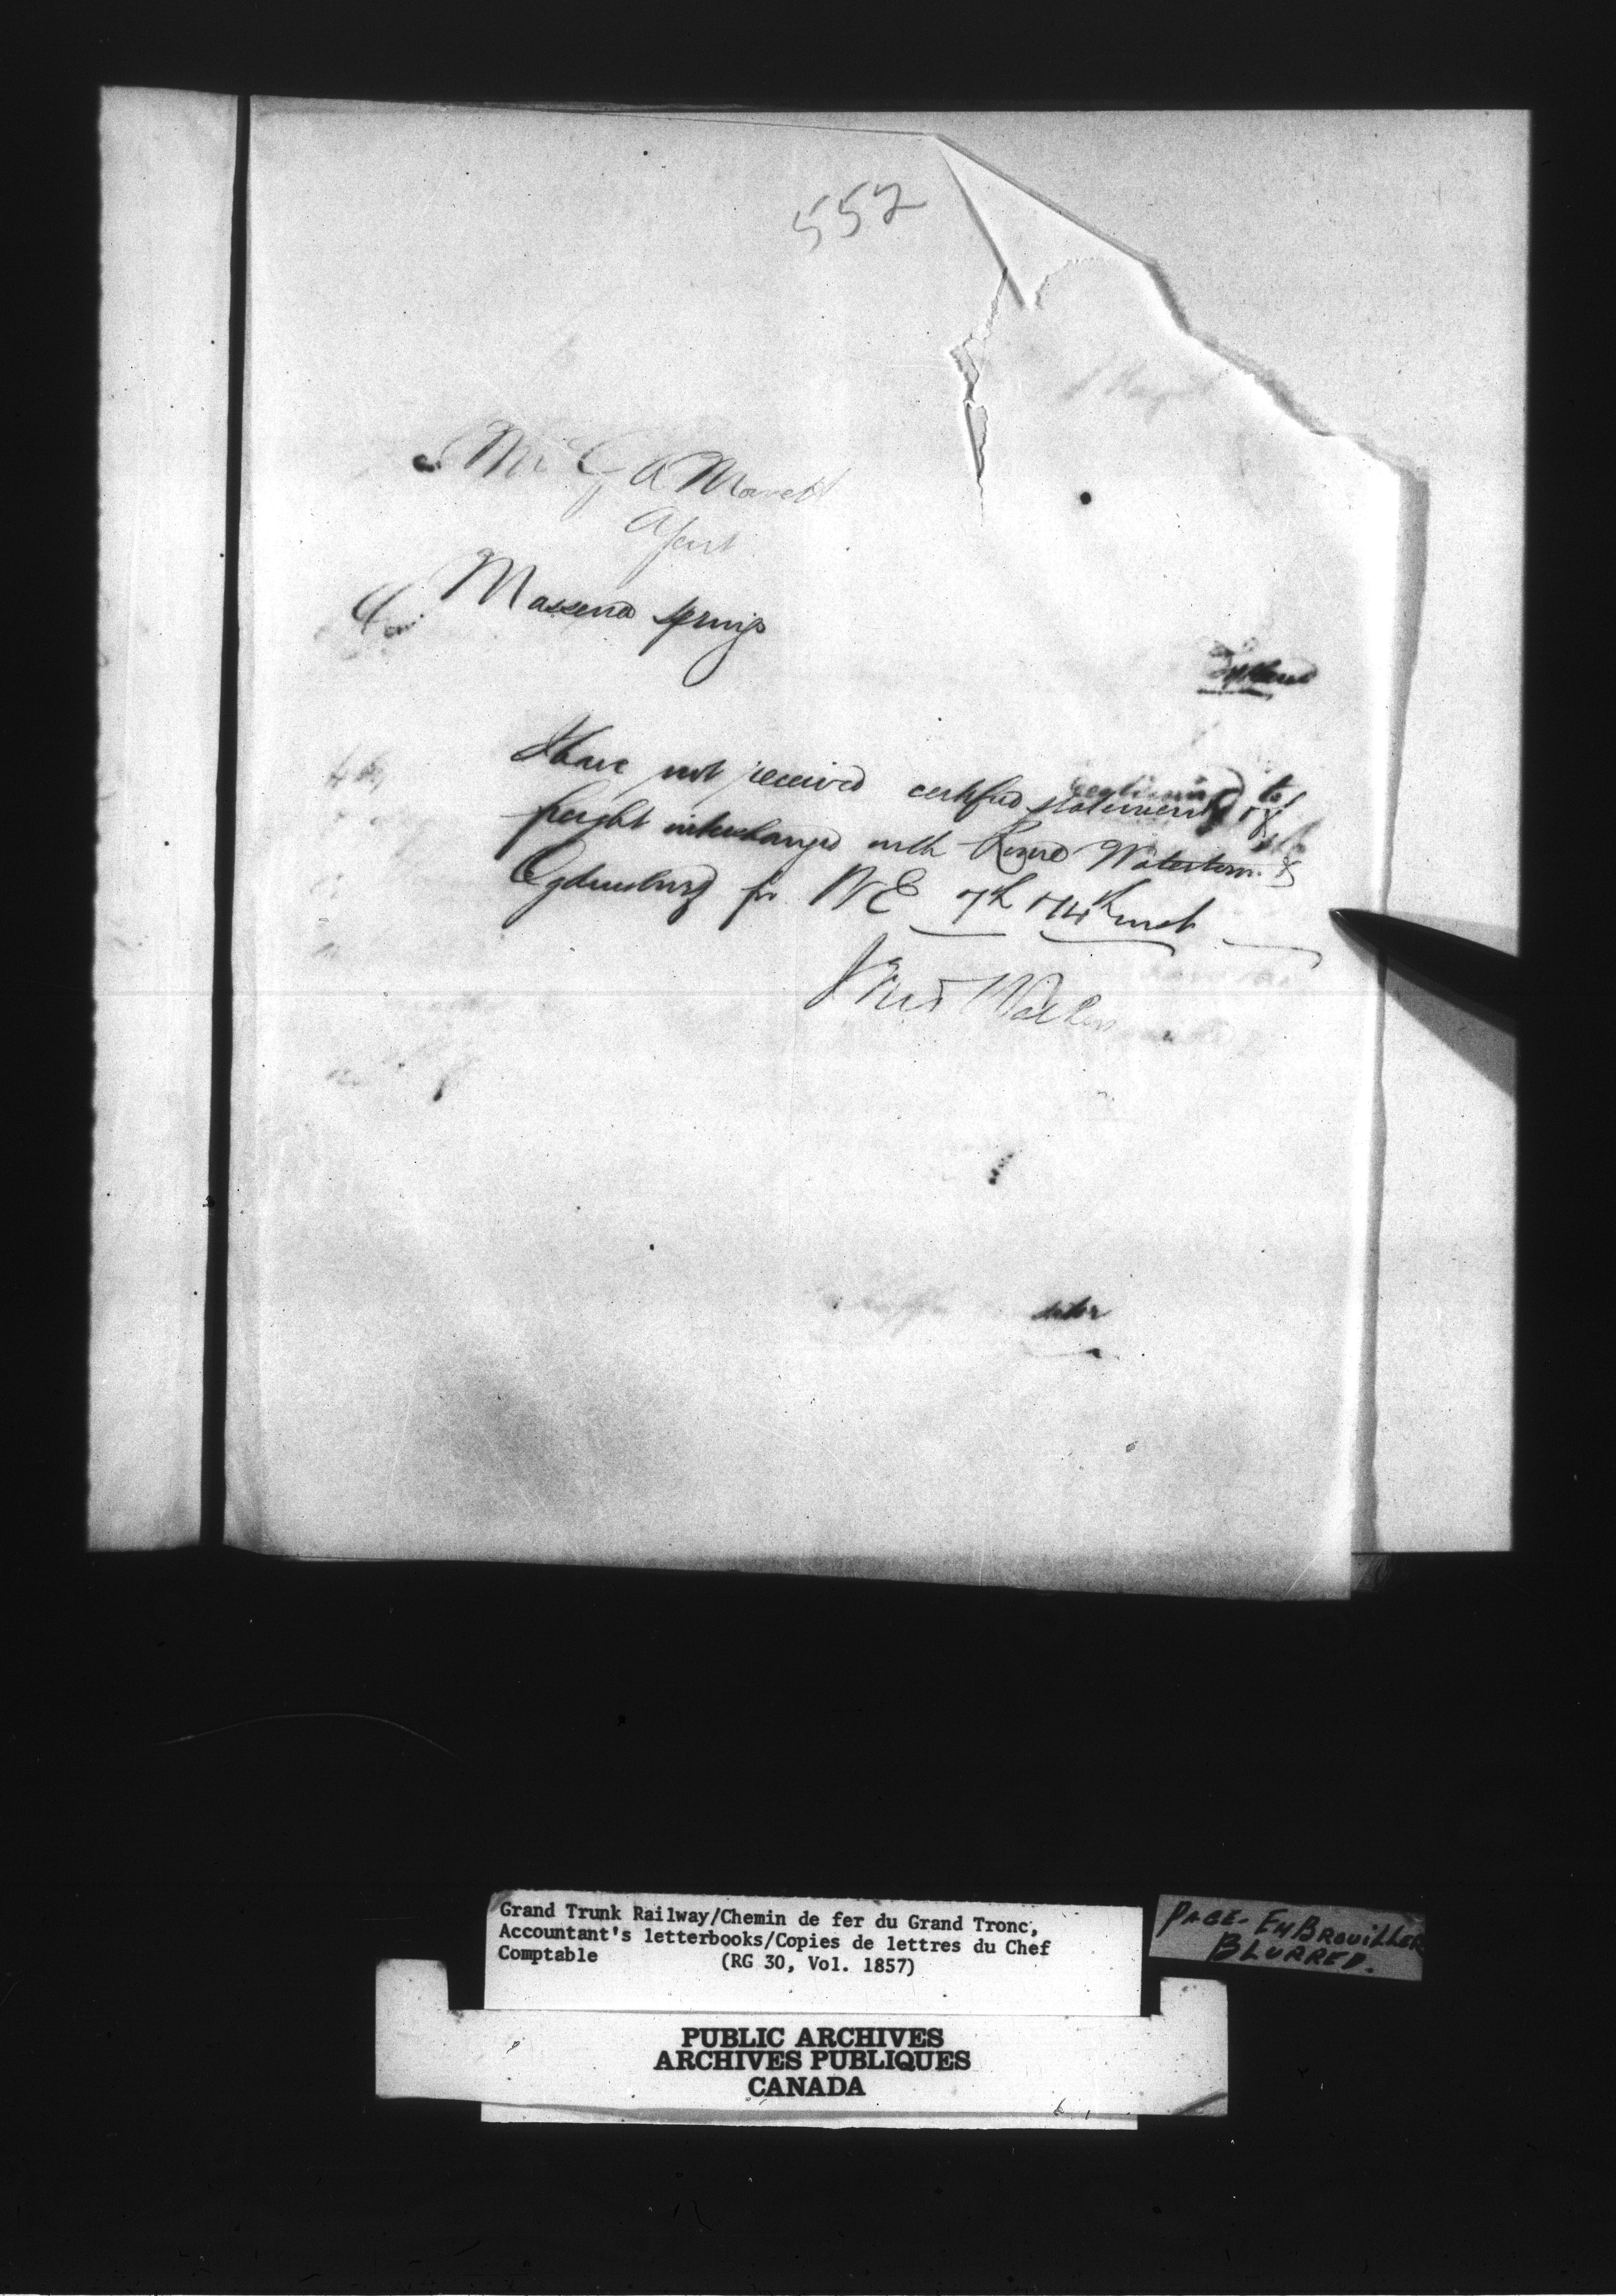 557
Mr G A
Agent
Massena Springs
I have not received certified statement of
freight interchanged with Rome Watertown &
Ogdensburg for WE 7th & 14th inst
Walker
Grand Trunk Railway/Chemin de fer du Grand Tronc,
Accountant's letterbooks/Copies de lettres du Chef
Comptable (RG 30, Vol. 1857)
PAGE- EMBROUILLER
BLURRED.
PUBLIC ARCHIVES
ARCHIVES PUBLIQUES
CANADA